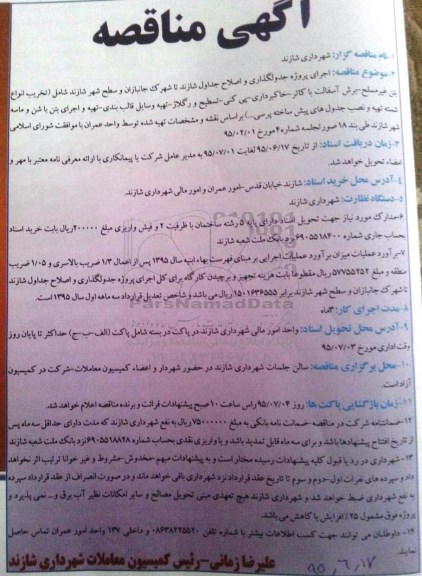 آگهی مناقصه
۱-نام مناقصه گزار: شهرداری شازند
۲-موضوع مناقصه: اجرای پروژه جدولگذاری و اصلاح جداول شازند تا شهرک جانبازان و سطح شهر شازند شامل (تخریب انواع
بتن غیرمسلح-برش آسفالت با کاتر-خاکبرداری-پی کنی-تسطیح و رگلاژ-تهیه وسایل قالب بندی-تهیه و اجرای بتن با شن و ماسه
شسته تهیه و نصب جدول های پیش ساخته پرسی...) براساس نقشه و مشخصات تهیه شده توسط واحد عمران با موافقت شورای اسلامی
شهر شازند طی بند ۱۸ صورتجلسه شماره ۴ مورخ ۹۵/۰۲/۰۱
۳-زمان دریافت اسناد: از تاریخ ۹۵/۰۶/۱۷ لغایت ۹۵/۰۷/۰۱ به مدیر عامل شرکت یا پیمانکاری با ارائه معرفی نامه معتبر با مهر و
امضاء تحویل خواهد شد.
۴-آدرس محل خرید اسناد: شازند.خیابان قدس-امور عمران و امور مالی شهرداری شازند.
۵-دستگاه نظارت: شهرداری شازند
۶-مدارک مورد نیاز جهت تحویل اسناد دارای پایه ۵ رشته ساختمان با ظرفیت ۲ و فیش واریزی مبلغ ۲۰۰۰۰۰ ریال بابت خرید اسناد
بحساب جاری شماره ۶۹۰۵۵۱۸۴۰۰ نزد بانک ملت شعبه شازند
۷-برآورد عملیات میزان برآورد عملیات اجرایی بر مبنای فهرست بهاء ابنیه سال ۱۳۹۵ پس از اعمال ۱/۳ ضریب بالاسری و ۱/۰۵ ضریب
منطقه و مبلغ ۵۷۷۵۵۲۵۲ ریال مقطوعا بابت هزینه تجهیز و برچیدن کارگاه برای کل اجرای پروژه جدولگذاری و اصلاح جداول شازند
تا شهرک جانبازان و سطح شهر شازند برابر ۱۵۰۱۶۳۶۵۵۵ ریال می باشد و شاخص تعدیل قرارداد سه ماهه اول سال ۱۳۹۵ است.
۸-مدت اجرای کار: ۳ماه
۹-آدرس محل تحویل اسناد: واحد امور مالی شهرداری شازند در پاکت در بسته شامل پاکت (الف-ب-ج) حداکثر تا پایان روز
وقت اداری مورخ ۹۵/۰۷/۰۳
۱۰-محل برگزاری مناقصه: سالن جلسات شهرداری شازند در حضور شهردار و اعضاء کمیسیون معاملات-شرکت در کمیسیون
آزاد است.
۱۱-زمان بازگشایی پاکت ها: روز ۹۵/۰۷/۰۴ راس ساعت ۱۰ صبح پیشنهادات قرائت و برنده مناقصه اعلام خواهد شد.
۱۲-ضمانتنامه شرکت در مناقصه ضمانت نامه بانکی به مبلغ ۷۵۰۰۰۰۰۰ ریال به نفع شهرداری شازند که مدت دارای حداقل سه ماه پس
از تاریخ افتتاح پیشنهادها باشد و برای سه ماه قابل تمدید باشد و یا واریزی نقدی بحساب شماره ۶۹۰۵۵۱۸۸۲۸ نزد بانک ملت شعبه شازند
۱۳-شهرداری در رد یا قبول کلیه پیشنهادات رسیده مختار است و به پیشنهادات مبهم-مخدوش-مشروط و غیر خوانا ترتیب اثر نخواهد
داد و سپرده های نفرات اول-دوم و سوم تا تاریخ عقد قرارداد نزد شهرداری باقی خواهد ماند و در صورت انصراف از عقد قرارداد سپرده
به نفع شهرداری ضبط خواهد شد و شهرداری شازند هیچ تعهدی مبنی تحویل مصالح و سایر امکانات نظیر آب برق و... نمی پذیرد و
پروژه فوق مشمول ۲۵٪ افزایش یا کاهش می باشد.
۱۴-داوطلبان می توانند جهت کسب اطلاعات بیشتر با شماره تلفن ۰۸۶۳۸۲۲۵۵۲۰ و داخلی ۱۳۷ واحد امور عمران تماس حاصل
نمایند.
علیرضا زمانی-رئیس کمیسیون معاملات شهرداری شازند
۹۵,۶,۱۷
ParsNamadData